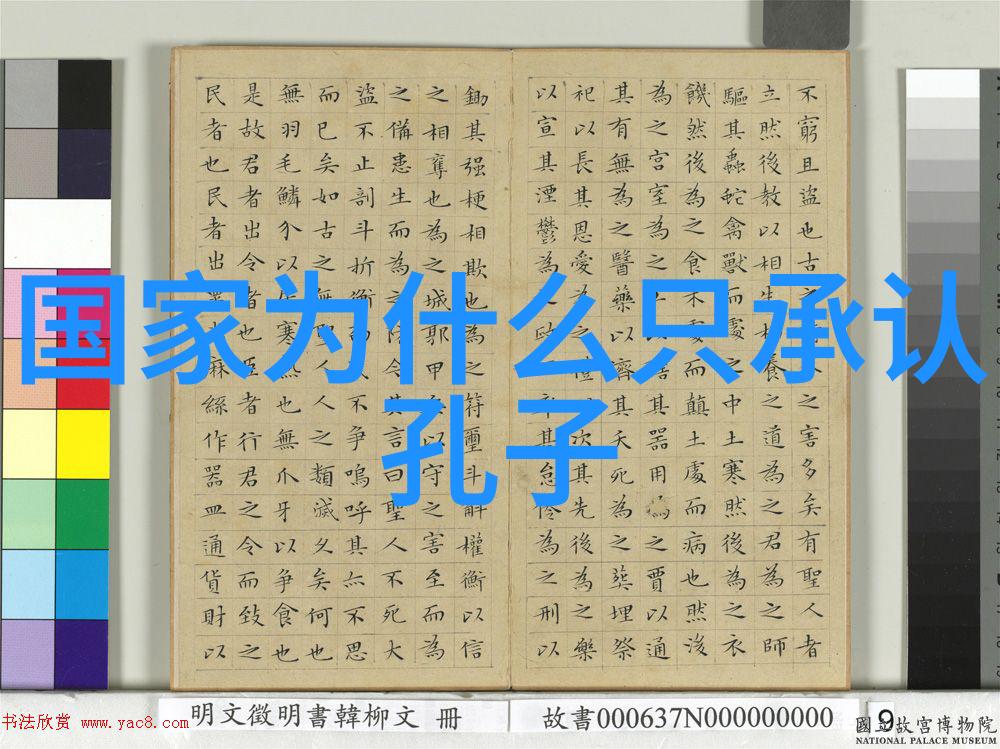 国家为什么只承认
孔子
不窮且盜也古之人之害多矣有聖人者
立然後教以相生相養之道為之君為之師
驅其蟲蛇禽獸而處之中土寒然後為之衣
饑然後為之食木處而顛土處而病也然後
為之宮室為之以其器用為之賈以通
其有無為之醫藥以濟其夭死為之葬埋祭
祀以長其恩愛為之禮次其先後為之樂
以宣其湮鬱為之政率其怠為之刑以
鋤其强梗相欺也為之符璽斗斛權衡以信
之相奪也為之城郭甲兵以守之害至而為
之備患生而為之防今其言曰聖人不死大
盜不止剖斗折衡而不争嗚呼其亦不思
而已矣如古之無人人之類滅久矣何也
無羽毛鱗介以居寒熱也無爪牙以争食也
是故君者出令者也臣者行君之令而致之
民者也民者出麻絲作器皿通貨財以
明文徵明書韓柳文 冊
故書000637N000000000
9
书法欣赏 www.yac8.com
國立故宮博物院
NATIONAL PALACE MUSEUM